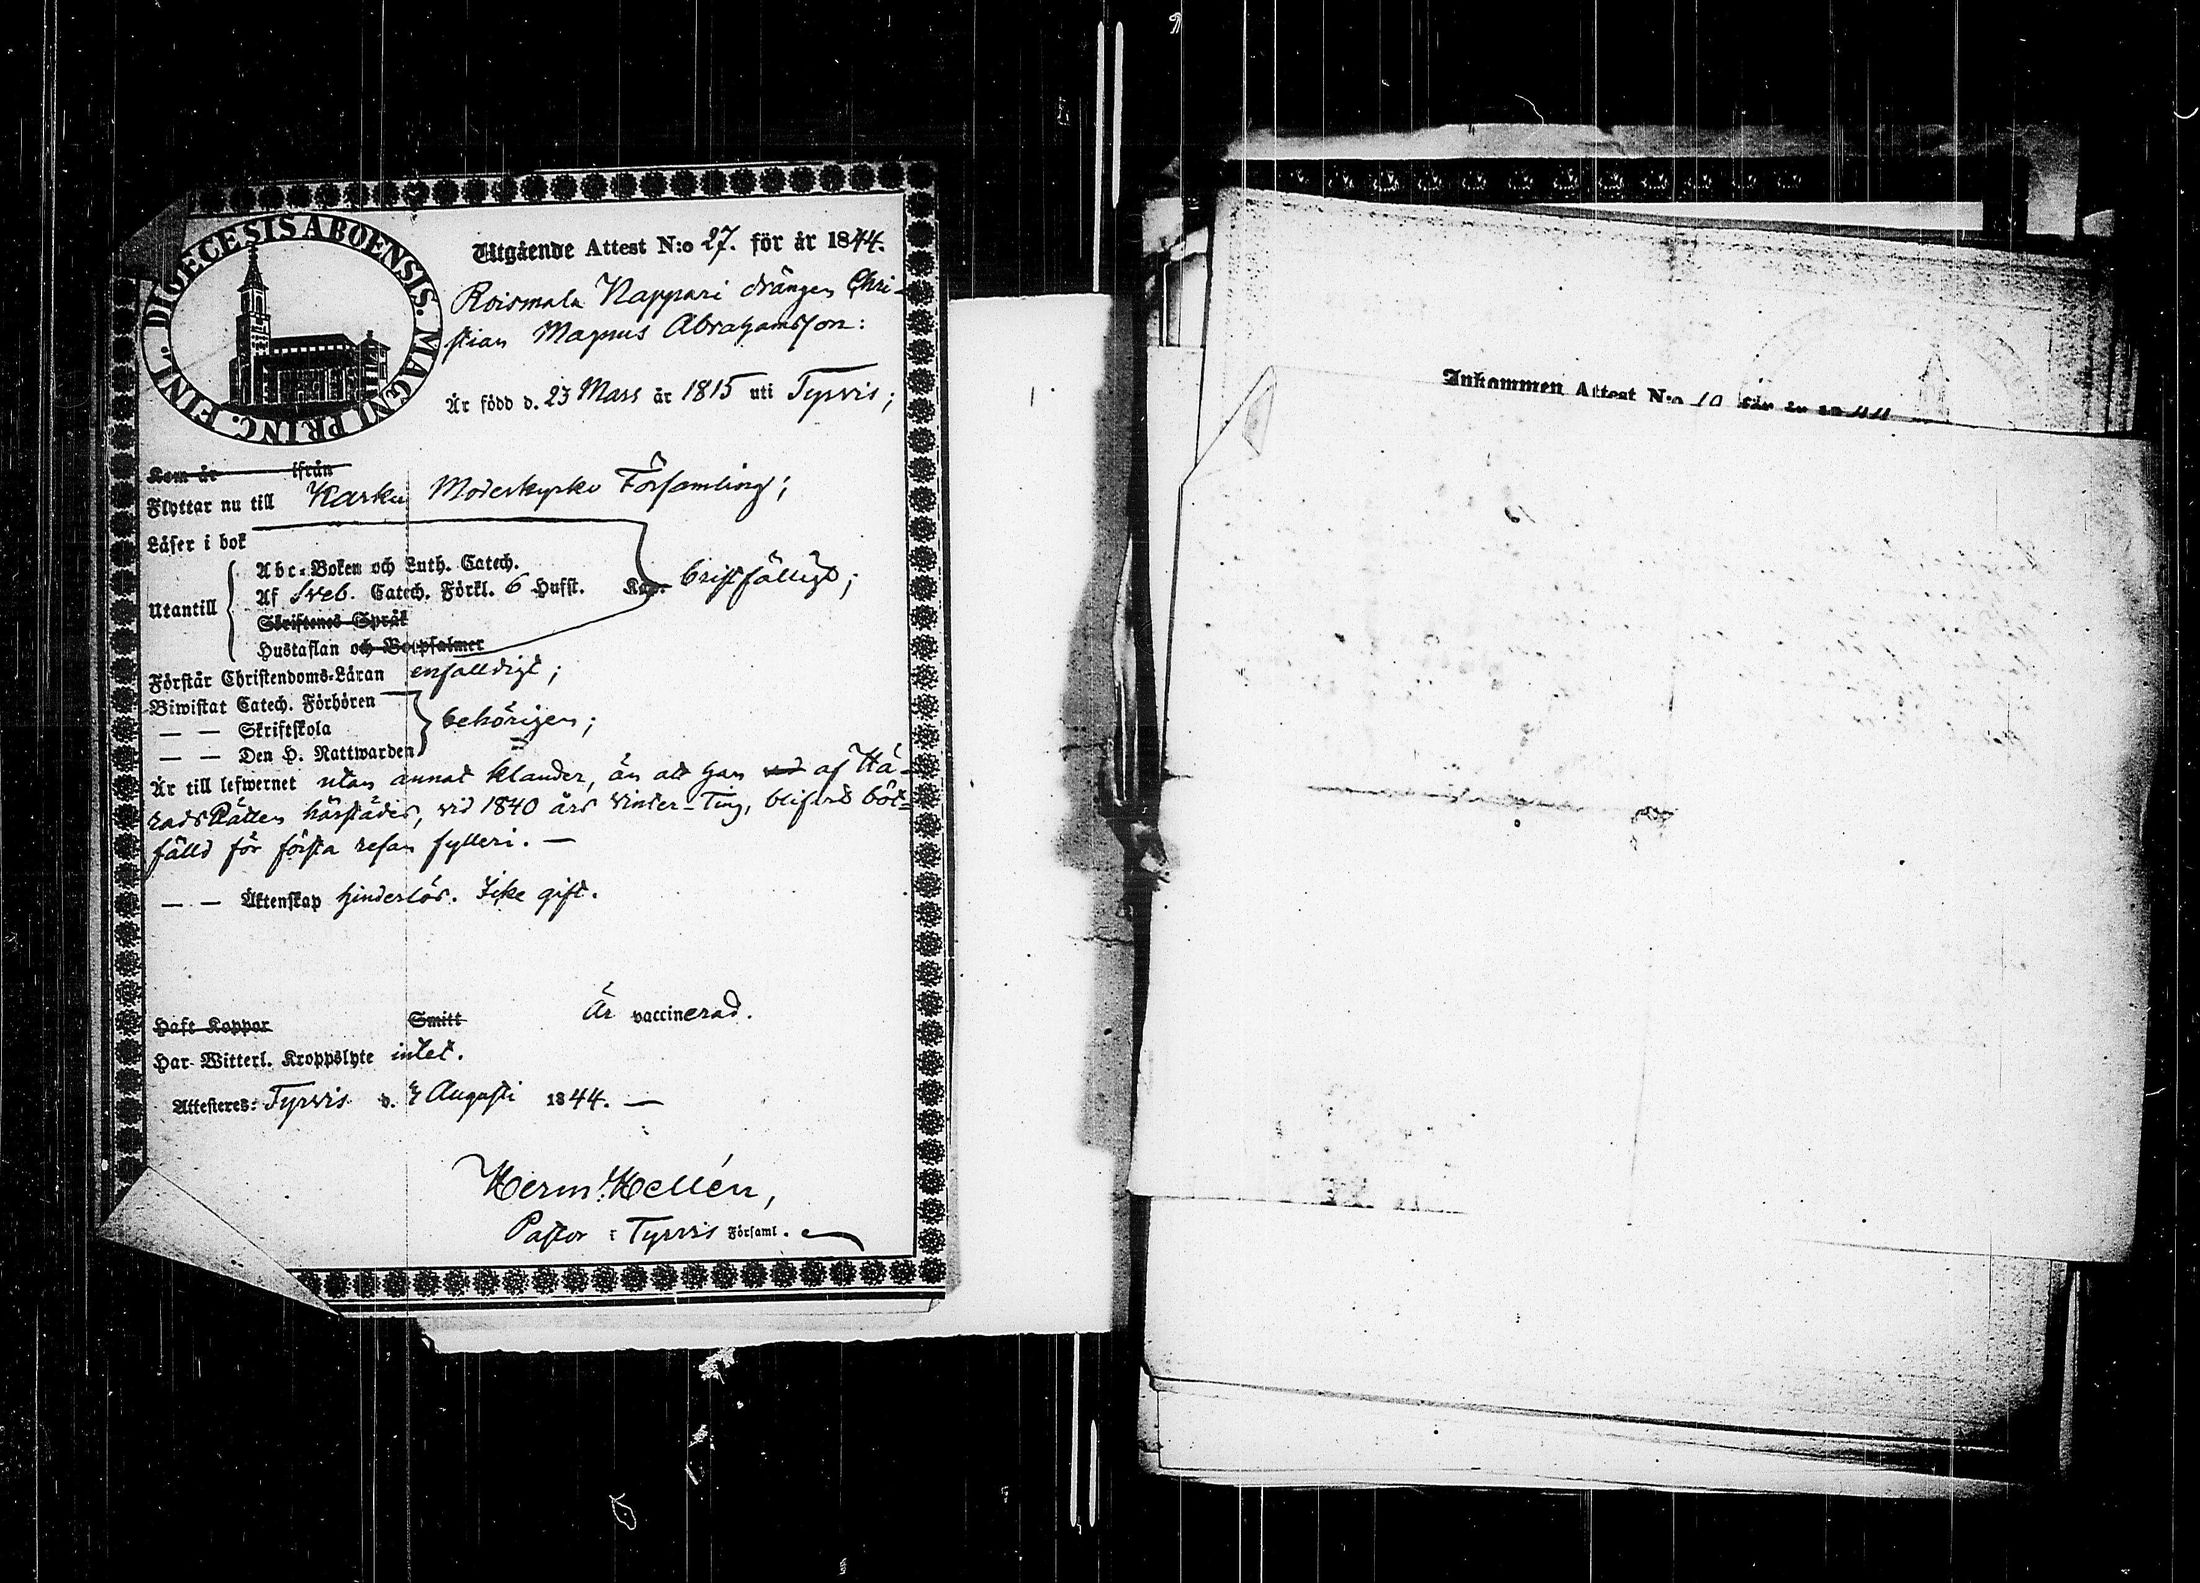 DIOECESIS ABOENSIS. MAGNI PRINC. FINL.
Utgående Attest N:o 27. för år 1844.
Roismala Nappari drängen Chri-
stian Magnus Abrahamsson:
Är född d. 23 Mars år 1815 uti Tyrvis;
Kom år ifrån
Flyttar nu till Karku Moderkyrko Församling;
Läser i bok
Abc-Boken och Luth. Catech.
Utantill Af Sveb. Catech. Förkl. 6 Hufst. Kap. bristfälligt;
Skriftenes Språk
Hustaflan och Botpsalmer
Förstår Christendoms-Läran enfalldigt;
Biwistat Catech. Förhören
— — Skriftskola behörigen;
— — Den H. Nattwarden
Är till lefwernet utan annat klander, än att han af Hä-
radsRätten härstädes, vid 1840 års Vinter-Ting, blifvit böt-
fälld för första resan fylleri. —
— — Äktenskap hinderlös. Icke gift.
Haft Koppor Smitt Är vaccinerad.
Har Witterl. Kroppslyte intet.
Attesteres: Tyrvis d. Augusti 1844. —
Herm. Hellén,
Pastor i Tyrvis Församl.
Inkommen Attest N:o 10 för år 1844